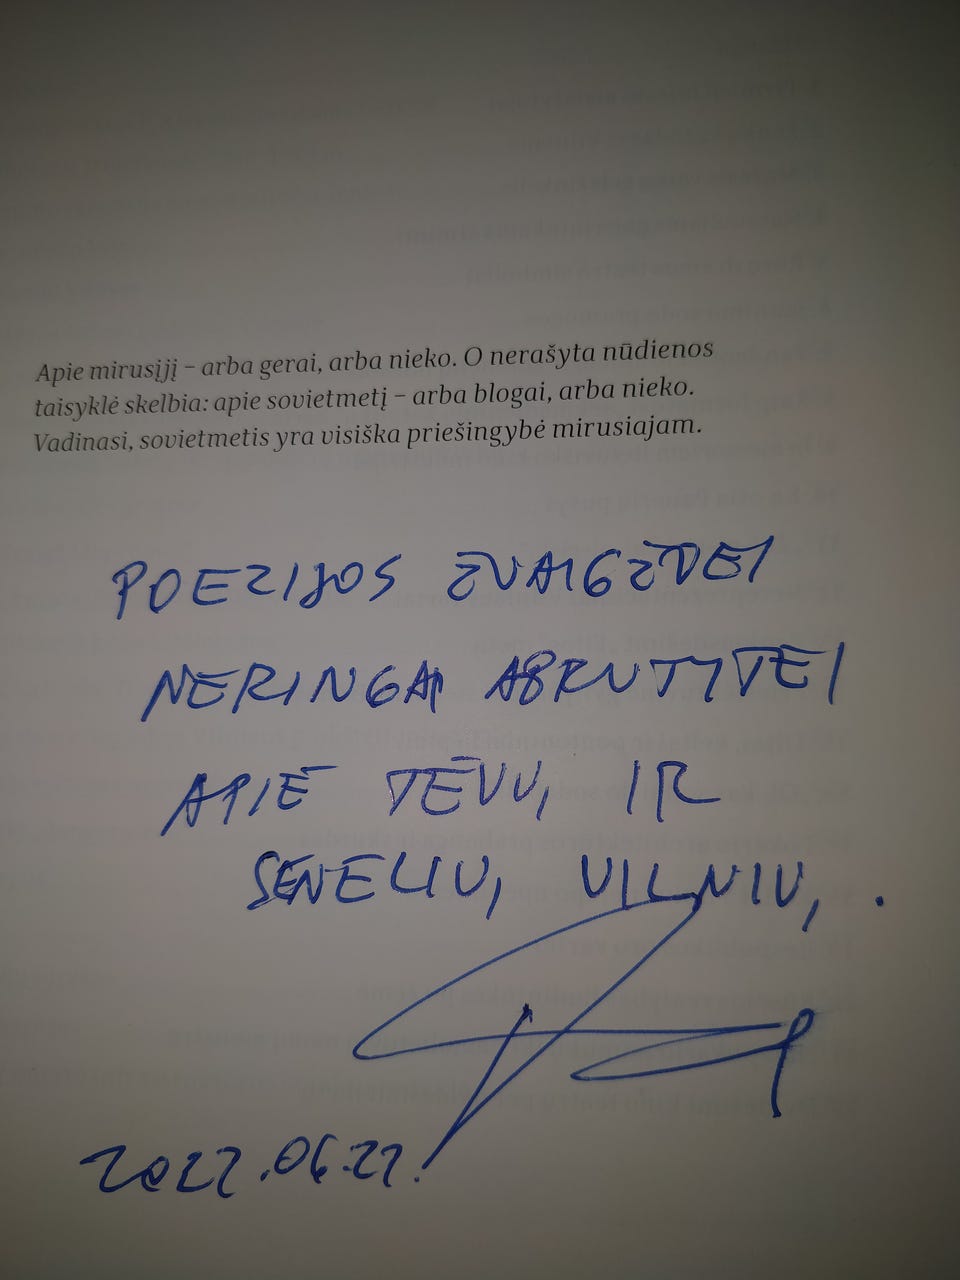 Apie mirusįjį – arba gerai, arba nieko. O nerašyta nūdienos
taisyklė skelbia: apie sovietmetį – arba blogai, arba nieko.
Vadinasi, sovietmetis yra visiška priešingybė mirusiajam.
POEZIJOS ŽVAIGŽDEI
NERINGAI ABRUTYTEI
APIE TĖVŲ IR
SENELIŲ VILNIŲ.
2022.06.22.